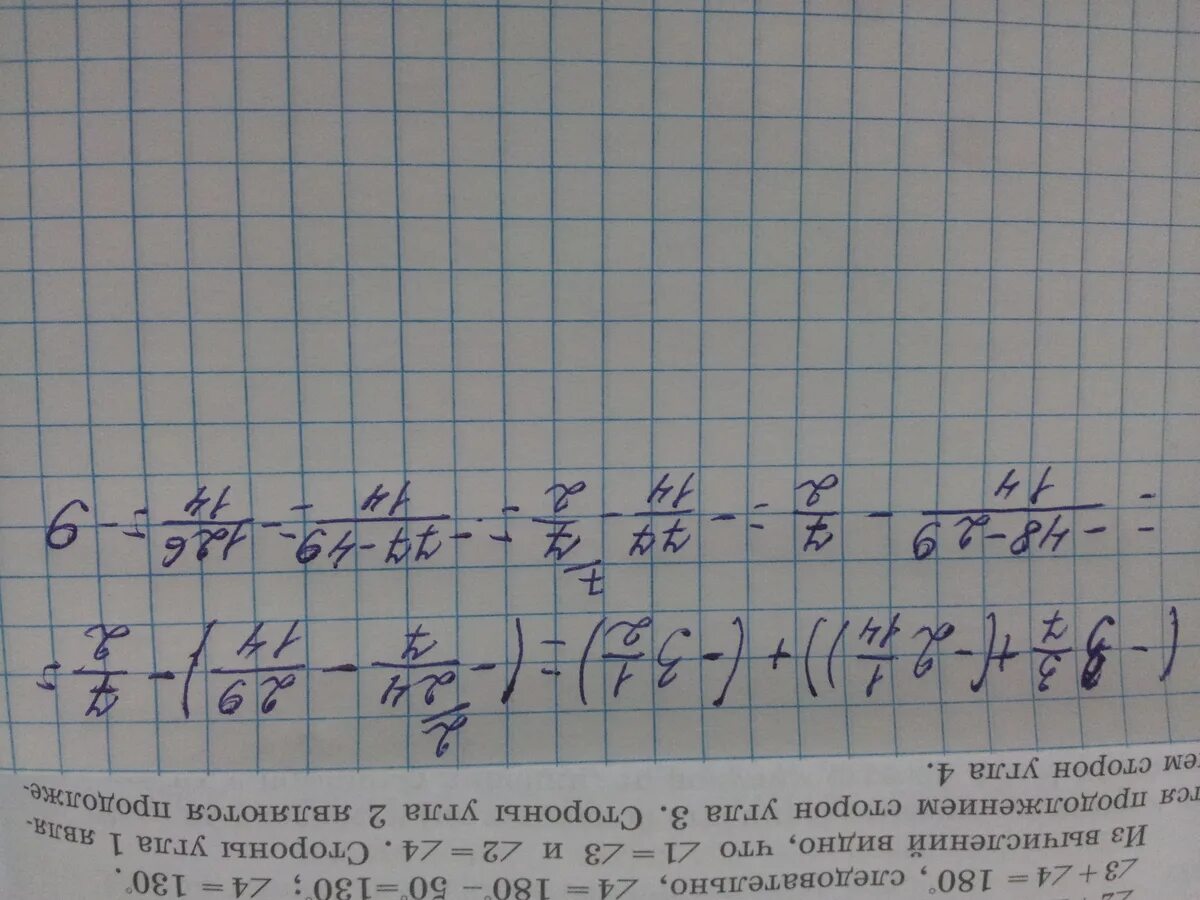 ∠3 + ∠4 = 180°, следовательно, ∠4 = 180° − 50° = 130°; ∠4 = 130°.
Из вычислений видно, что ∠1 = ∠3 и ∠2 = ∠4. Стороны угла 1 явля-
тся продолжением сторон угла 3. Стороны угла 2 являются продолже-
ем сторон угла 4.
(- 3 3/7 + (- 2 1/14)) + (- 3 1/2) = (- 24/7 - 29/14) - 7/2 =
= - 48-29/14 - 7/2 = - 77/14 - 7/2 = - 77-49/14 = - 126/14 = - 9